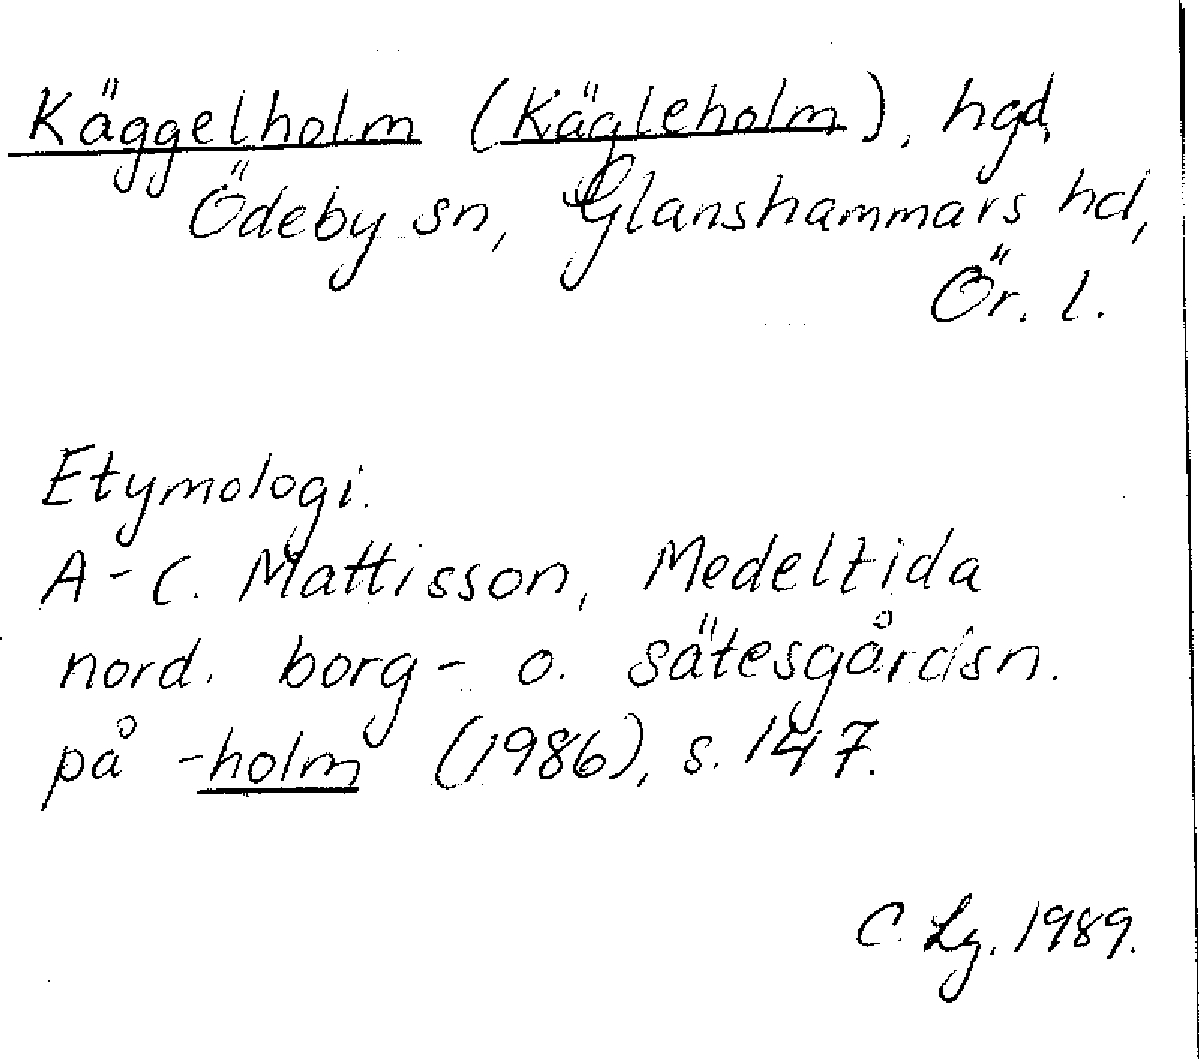 Käggelholm (Kägleholm), hgd,
Ödeby sn, Glanshammars hd,
Ör. l.
Etymologi.
A-C. Mattisson, Medeltida
nord. borg- o. sätesgårdsn.
på -holm (1986), s. 147.
C. Lg. 1989.